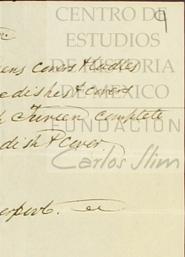 9
CENTRO DE
ESTUDIOS
DE HISTORIA
DE MÉXICO
FUNDACIÓN
Carlos Slim
ens covers & ladles
e dishes & covers
Tureen complete
dish & Cover